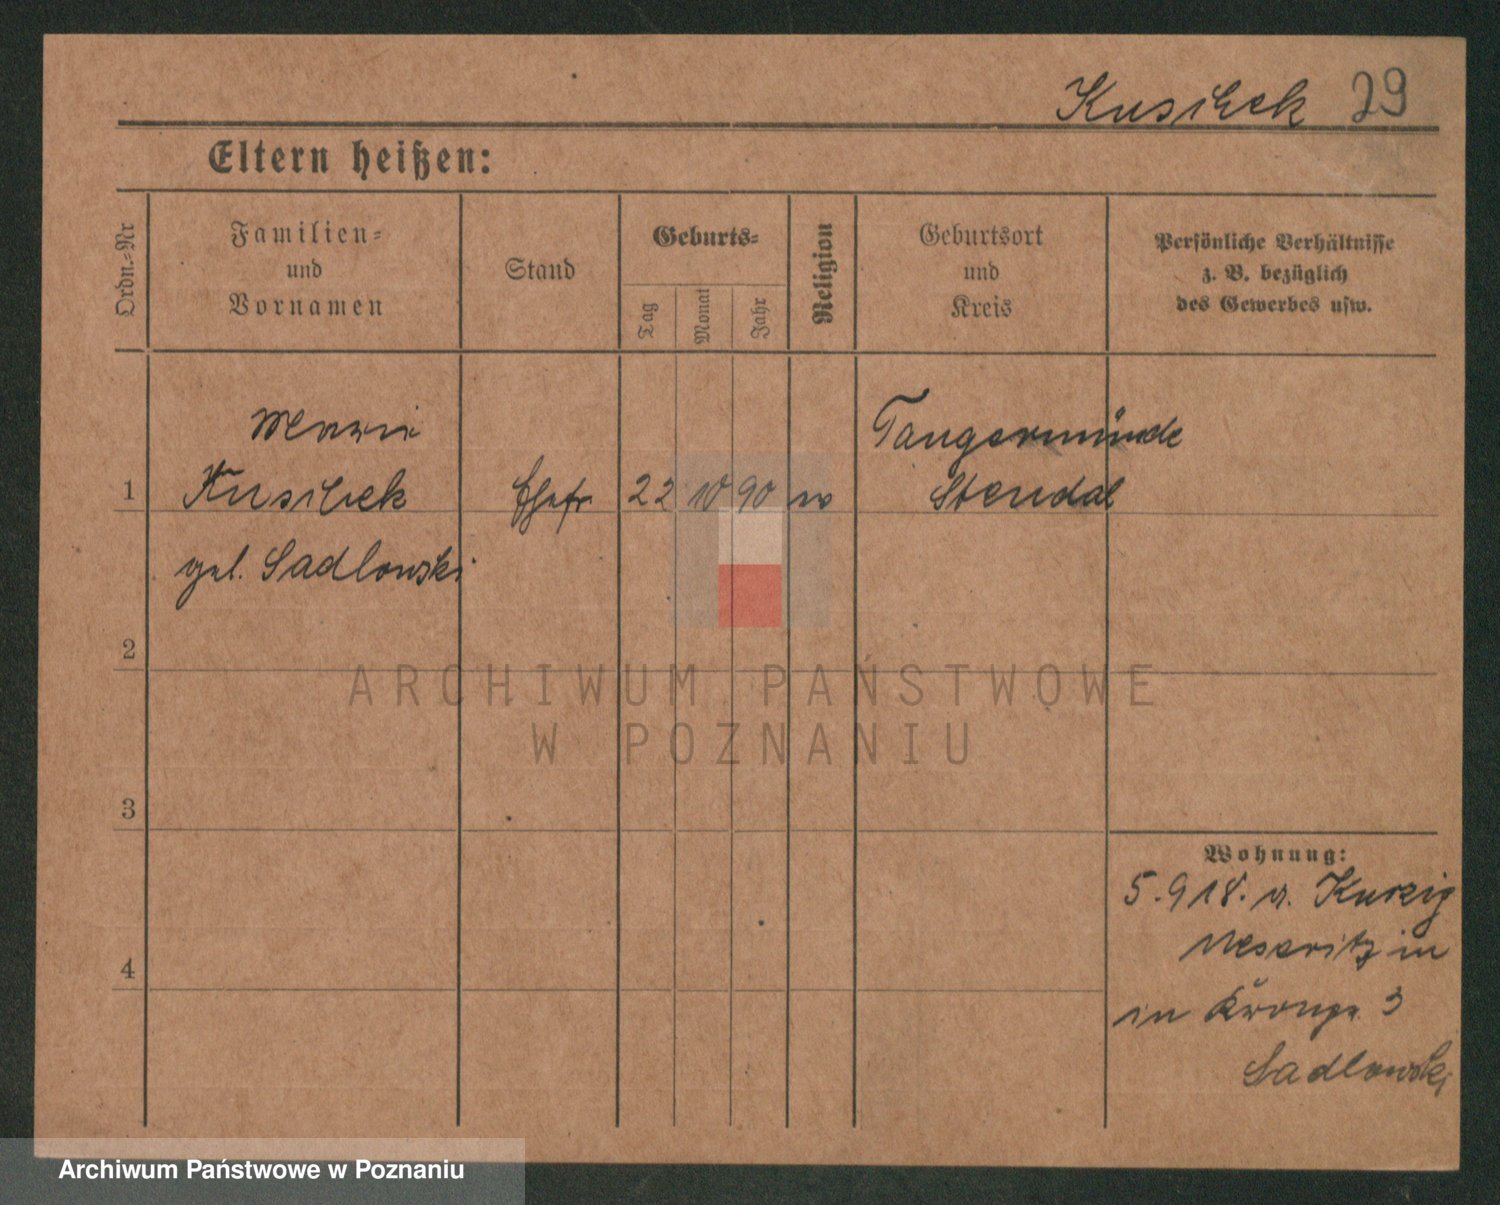 Kusibek 29
Eltern heißen:
Ordn.=Nr
Familien=
und
Vornamen
Stand
Geburts=
Tag
Monat
Jahr
Religion
Geburtsort
und
Kreis
Persönliche Verhältnisse
z. B. bezüglich
des Gewerbes usw.
Marie
Tangermünde
1 Kusibek Ehefr 22 10 90 Stendal
geb. Sadlowski
2
ARCHIWUM PAŃSTWOWE
W POZNANIU
3
Wohnung:
5.918. Kurzig
4
Meseritz in
in
3
Sadlowski
Archiwum Państwowe w Poznaniu